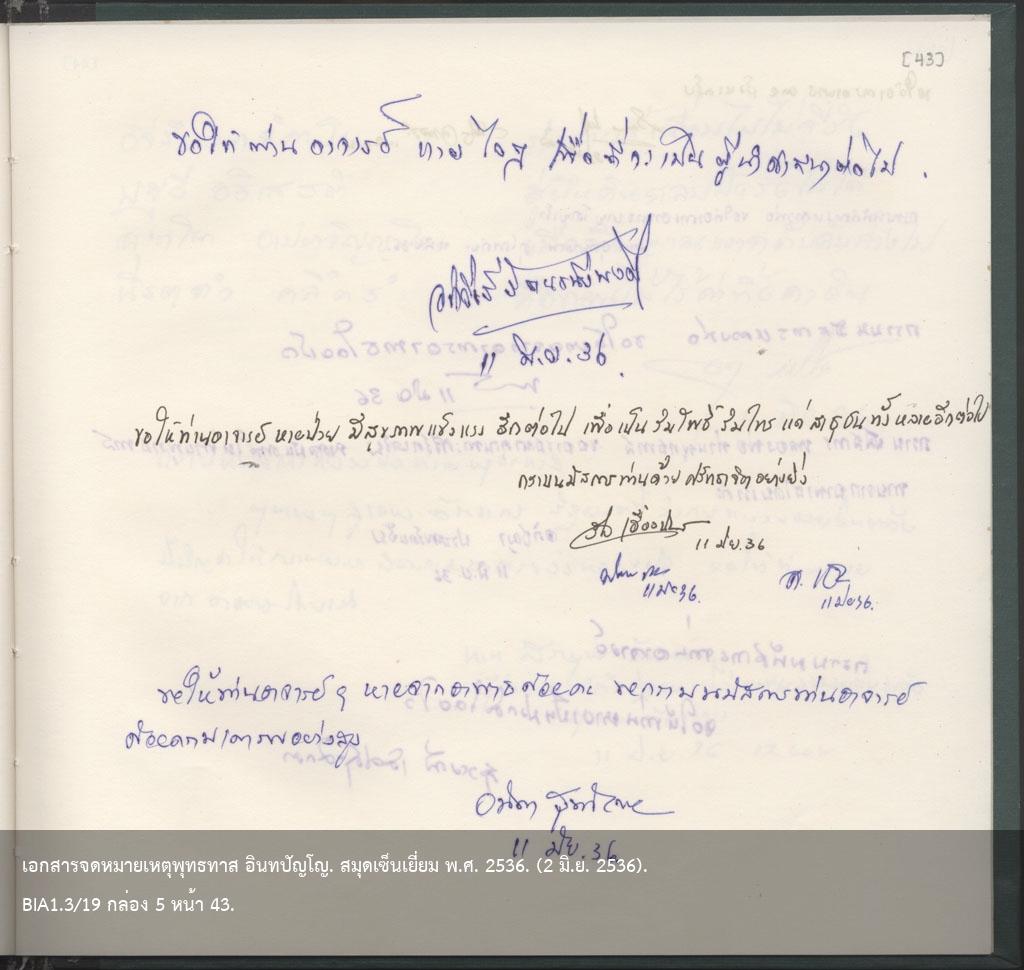 [43]
ขอให้ท่านอาจารย์ หายไวๆ เพื่อที่จะเป็นผู้นำศาสนาต่อไป .
11 มิ.ย. 36.
ขอให้ท่านอาจารย์หายป่วย มีสุขภาพแข็งแรง อีกต่อไป เพื่อเป็นร่มโพธิ์ร่มไทร แด่สาธุชนทั้งหลายอีกต่อไป
กราบนมัสการท่านด้วยศรัทธาจิตอย่างยิ่ง
11 มิย. 36
11 มิย 36.
11 มิย 36.
ขอให้ท่านอาจารย์ ๆ หายจากอาพาธด้วยเถอะ ขอกราบนมัสการท่านอาจารย์
ด้วยความเคารพอย่างสูง
11 มิย. 36
เอกสารจดหมายเหตุพุทธทาส อินทปัญโญ. สมุดเซ็นเยี่ยม พ.ศ. 2536. (2 มิ.ย. 2536).
BIA1.3/19 กล่อง 5 หน้า 43.